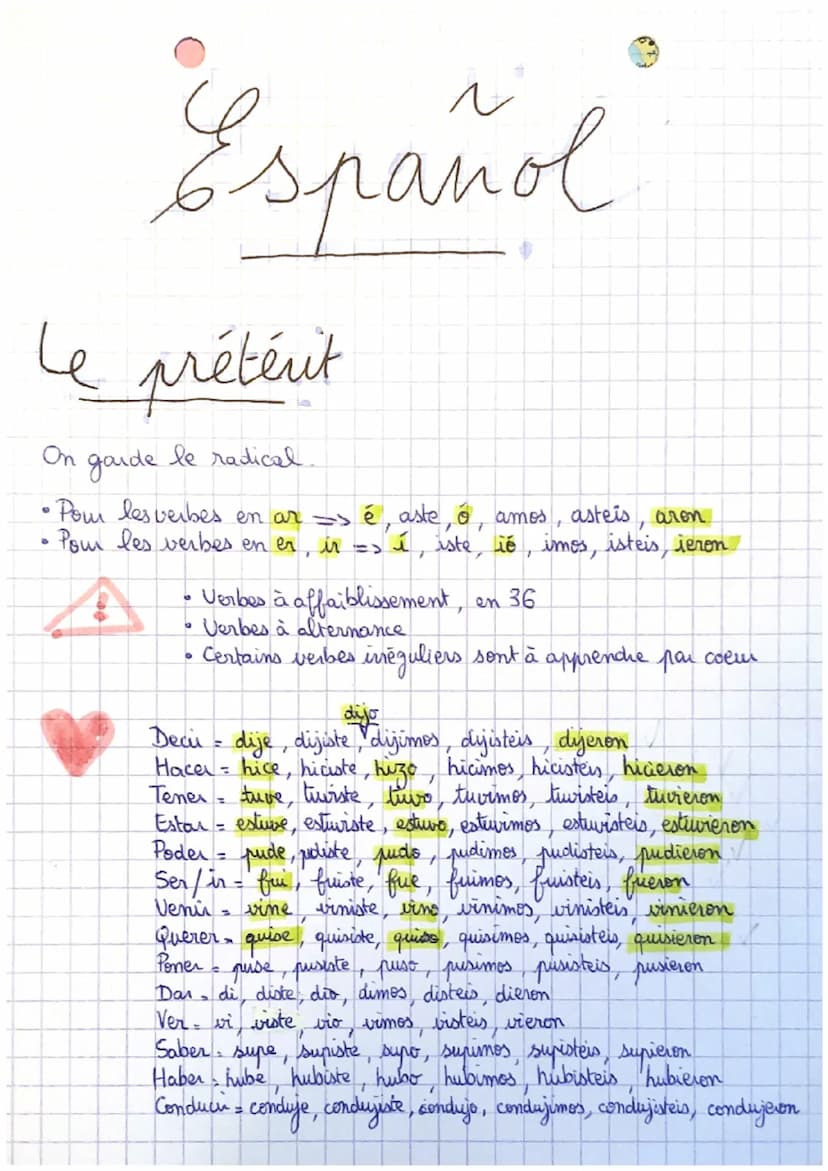 Español
Le prétérit
On garde le radical.
• Pour les verbes en ar => é, aste, ó, amos, asteis, aron
• Pour les verbes en er, ir => í, iste, ió, imos, isteis, ieron
!
• Verbes à affaiblissement, en 36
• Verbes à alternance
• Certains verbes irréguliers sont à apprendre par coeur
dijo
Decir = dije, dijiste, dijimos, dijisteis, dijeron
Hacer = hice, hiciste, hizo, hicimos, hicisteis, hicieron
Tener = tuve, tuviste, tuvo, tuvimos, tuvisteis, tuvieron
Estar = estuve, estuviste, estuvo, estuvimos, estuvisteis, estuvieron
Poder = pude, pudiste, pudo, pudimos, pudisteis, pudieron
Ser/ir = fui, fuiste, fue, fuimos, fuisteis, fueron
Venir = vine, viniste, vino, vinimos, vinisteis, vinieron
Querer = quise, quisiste, quiso, quisimos, quisisteis, quisieron
Poner = puse, pusiste, puso, pusimos, pusisteis, pusieron
Dar = di, diste, dio, dimos, disteis, dieron
Ver = vi, viste, vio, vimos, visteis, vieron
Saber = supe, supiste, supo, supimos, supisteis, supieron
Haber = hube, hubiste, hubo, hubimos, hubisteis, hubieron
Conducir = conduje, condujiste, condujo, condujimos, condujisteis, condujeron